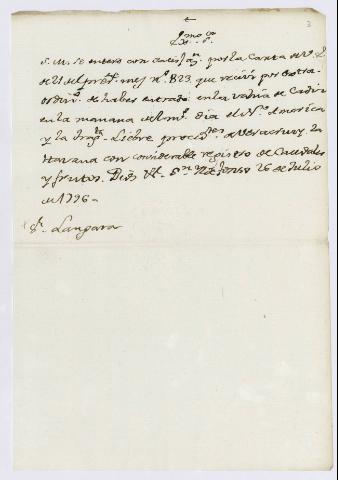 3
+
Exmo Sor
S. M. se entero con satisfn. por la Carta de V.E.
de 21 del prest. mes no. 823, que recivi por extra-
ordino. de haber entrado en la vahia de Cadiz
en la mañana del mo. dia el No. America
y la fraga. Liebre procedtes. de Veracruz, la
Havana con considerable registro de Caudales
y frutos. Dios &a. Sn. Ildefonso 26 de Julio
de 1796
Sr. Langara